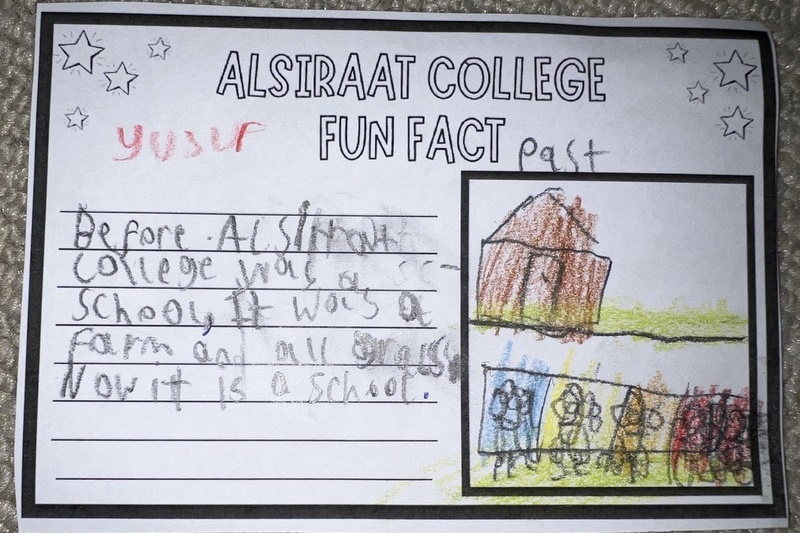 ALSIRAAT COLLEGE
FUN FACT
yusuf
past
Before ALSIraat
college was a
School, It was a
farm and all grass
Now it is a school.